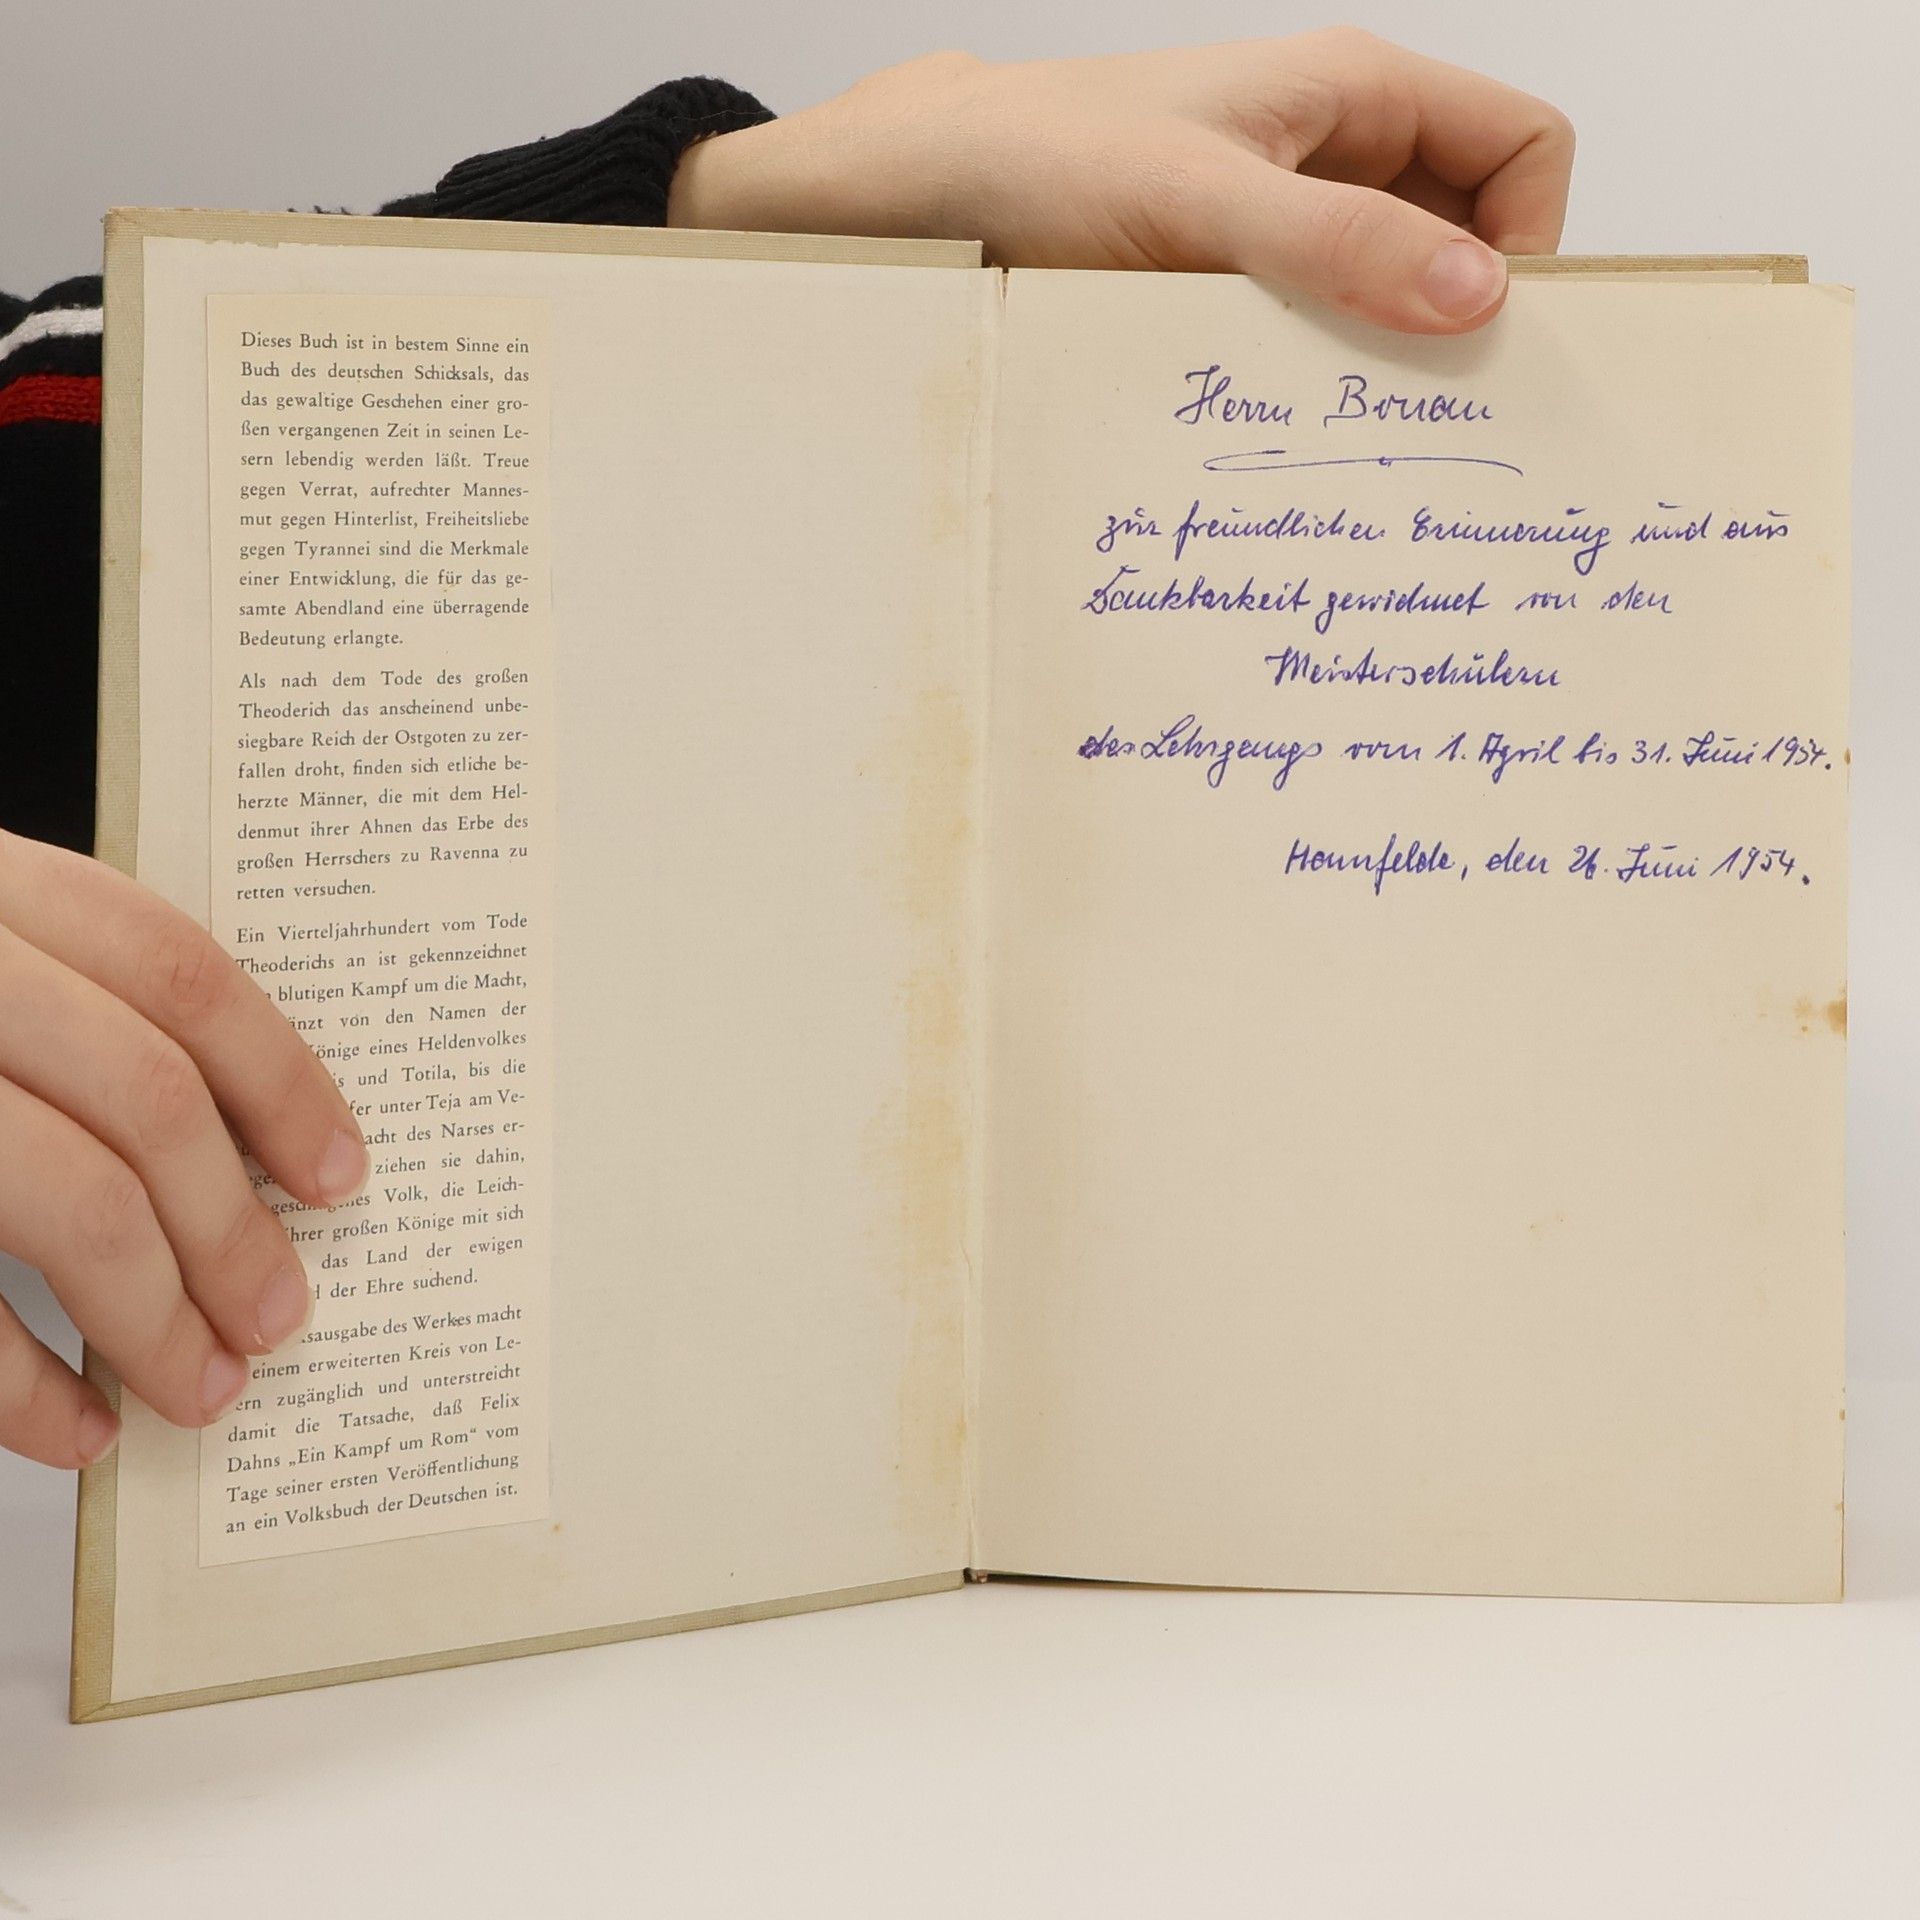 Dieses Buch ist in bestem Sinne ein
Buch des deutschen Schicksals, das
das gewaltige Geschehen einer gro-
ßen vergangenen Zeit in seinen Le-
sern lebendig werden läßt. Treue
gegen Verrat, aufrechter Mannes-
mut gegen Hinterlist, Freiheitsliebe
gegen Tyrannei sind die Merkmale
einer Entwicklung, die für das ge-
samte Abendland eine überragende
Bedeutung erlangte.
Als nach dem Tode des großen
Theoderich das anscheinend unbe-
siegbare Reich der Ostgoten zu zer-
fallen droht, finden sich etliche be-
herzte Männer, die mit dem Hel-
denmut ihrer Ahnen das Erbe des
großen Herrschers zu Ravenna zu
retten versuchen.
Ein Vierteljahrhundert vom Tode
Theoderichs an ist gekennzeichnet
blutigen Kampf um die Macht,
von den Namen der
Könige eines Heldenvolkes
und Totila, bis die
unter Teja am Ve-
des Narses er-
ziehen sie dahin,
Volk, die Leich-
ihrer großen Könige mit sich
das Land der ewigen
der Ehre suchend.
des Werkes macht
einem erweiterten Kreis von Le-
sern zugänglich und unterstreicht
damit die Tatsache, daß Felix
Dahns „Ein Kampf um Rom“ vom
Tage seiner ersten Veröffentlichung
an ein Volksbuch der Deutschen ist.
Herrn
zur freundlichen Erinnerung und aus
Dankbarkeit gewidmet von den
Meisterschülern
des Lehrgangs vom 1. April bis 31. Juni 1954.
den 26. Juni 1954.